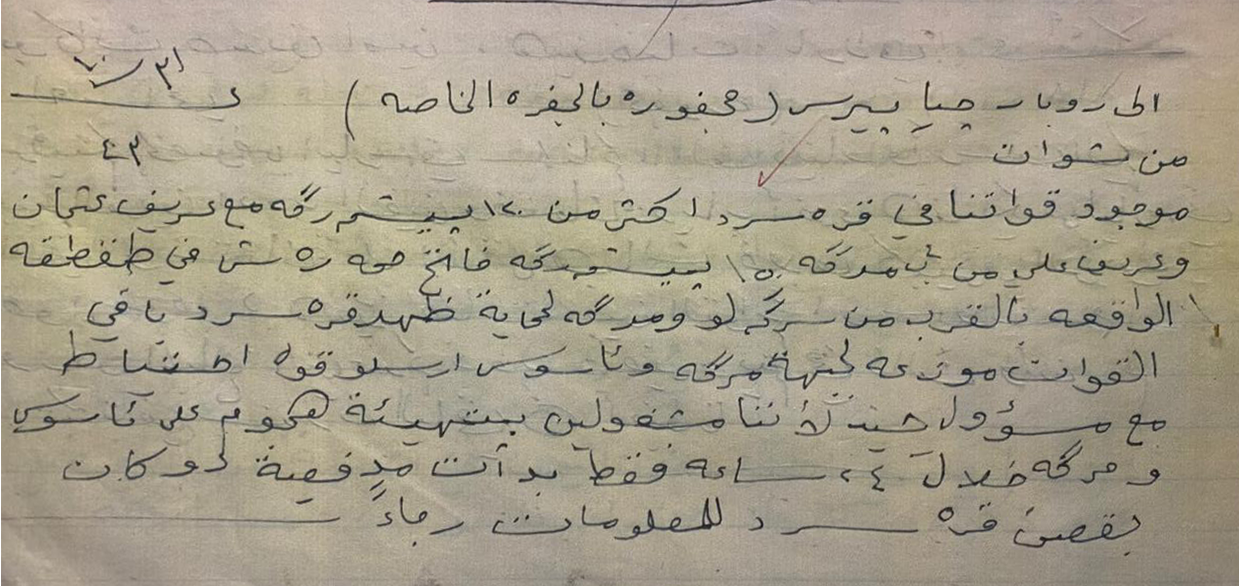 ٣١/
الى روبار چيا پيرس (محفوره بالجفره الخاصه)
٤٣
من نشوات
موجود قواتنا في قره سرد اكثر من ١٢٠ پيشمرگه مع عريف عثمان
وعريف علي من مرگه ١٥٠ پيشمرگه فاتح حمه ره ش في طقطقه
الواقعه بالقرب من سرگه لو ومرگه لحماية ظهر قره سرد باقي
القوات موزعه لجبهة مرگه وئاسوس ارسلو قوة احتياط
مع مسؤول جيد لأننا مشغولين بتهيئة هجوم على ئاسوس
ومرگه خلال ٢٤ ساعه فقط بدأت مدفعية دوكان
بقصف قره سرد للمعلومات رجاءً